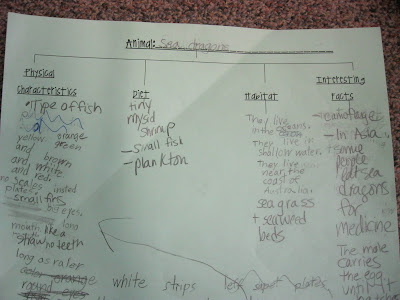 Animal: Sea dragons
Physical
Characteristics
Type of fish
yellow orange
and green
and brown
and white
and red
no scales insted
plates
small fins
eyes.
long
mouth like a
straw no teeth
long as ruler
round
Diet
tiny
mysid
shrimp
- small fish
- plankton
Habitat
They live
in the oceans.
They live in
shallow water.
They live
near the
coast of
Australia.
sea grass
+ seaweed
beds
Interesting
Facts
- camoflauges
- In Asia
some
people
sea
dragons
for
medicine
The male
carries
the egg
until
white strips
plates